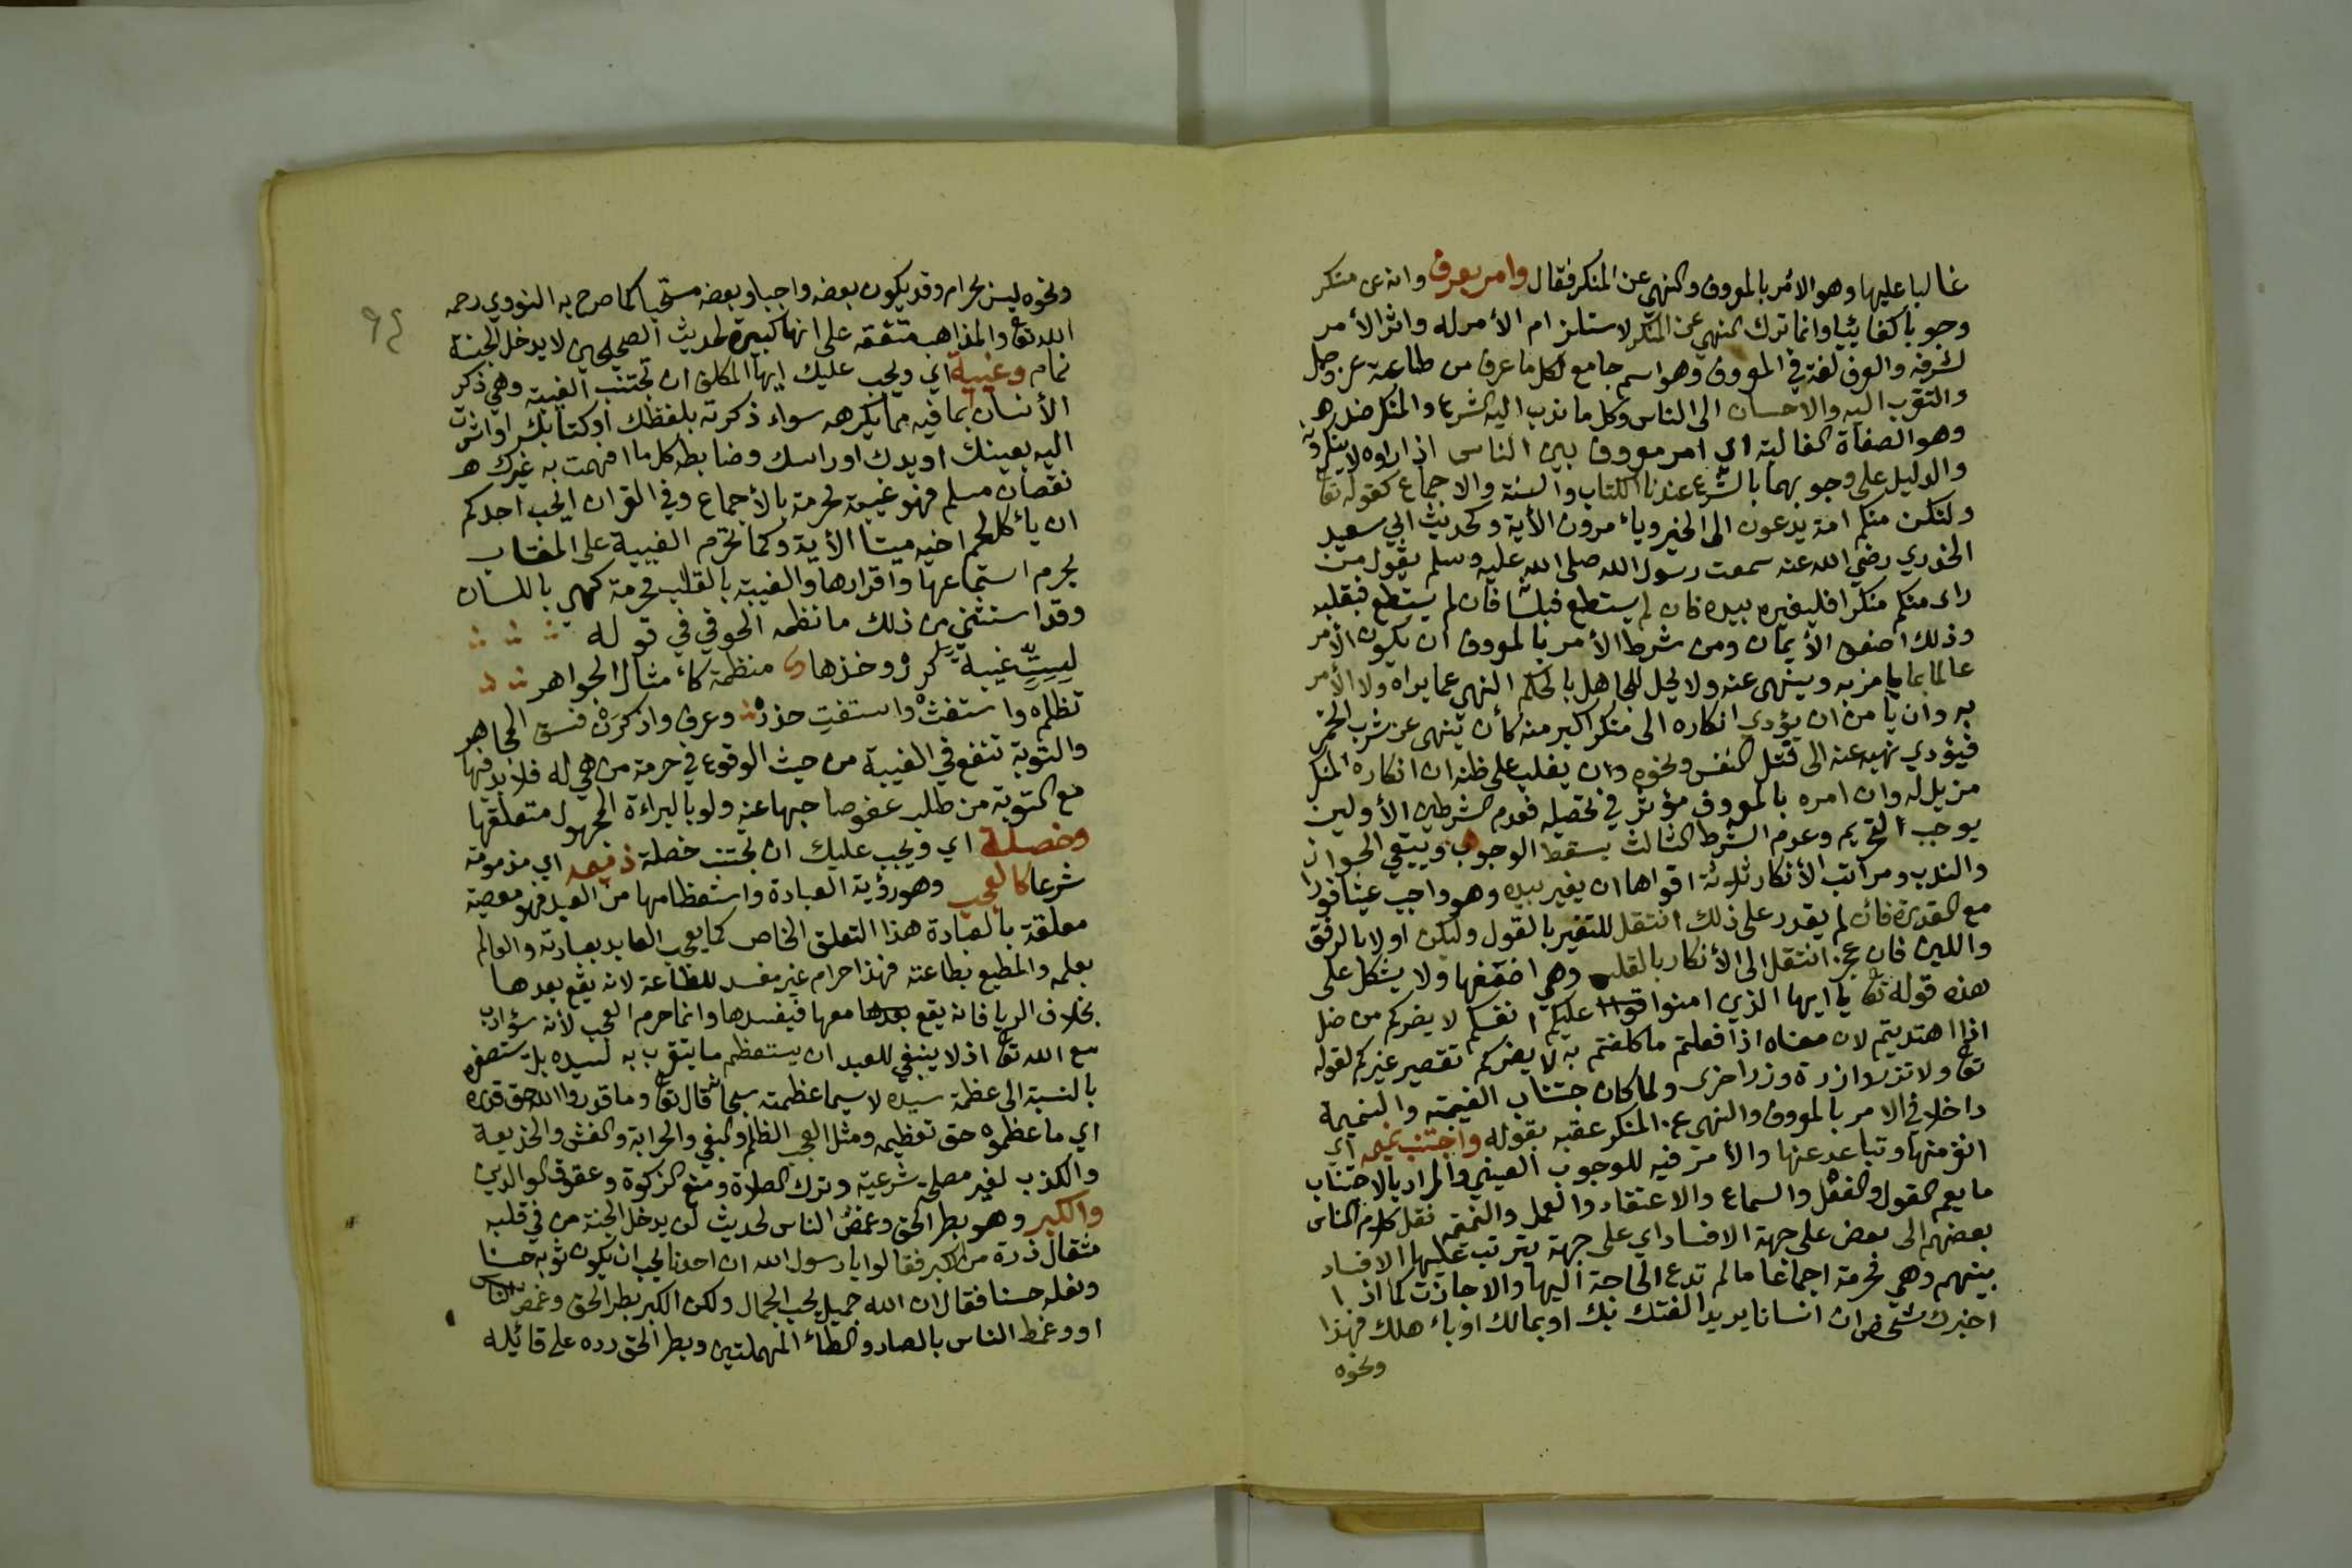 غالبا عليها وهو الأمر بالمعروف والنهي عن المنكر فقال وامر بعرف وانه عن منكر
وجوبا كفائيا وانما ترك النهي عن المنكر لاستلزام الأمر له واثر الأمر
لشرفه والعرف لغة في المعروف وهو اسم جامع لكل ما عرف من طاعة عز وجل
والتقرب اليه والاحسان الى الناس وكل ما ندب اليه الشرع والمنكر ضد ه
وهو الصفاة الغالبة اي امر معروف بين الناس اذا راوه لا ينكرونه
والدليل على وجوبهما بالشرع عندنا الكتاب والسنة والاجماع كقوله تعا
ولتكن منكم امة يدعون الى الخير ويأمرون الأية وكحديث ابي سعيد
الخدري رضي الله عنه سمعت رسول الله صلى الله عليه وسلم يقول من
راى منكم منكرا فليغيره بيده فان لم يستطع فبلسا فان لم يستطع فبقلبه
وذلك اضعف الأيمان ومن شرط الأمر بالمعروف ان يكون الأمر
عالما بما يامر به وينهى عنه ولا يحل للجاهل بالحكم النهي عما يراه ولا الأمر
به وان يامن ان يؤدي انكاره الى منكر اكبر منه كأن ينهى عن شرب الخمر
فيؤدي نهيه عنه الى قتل النفس ونحوه وان يغلب على ظنه ان انكاره المنكر
مزيل له وان امره بالمعروف مؤثر في تحصيله فعدم الشرطين الأولين
يوجب التحريم وعدم الشرط الثالث يسقط الوجوب ويبقي الجواز
والندب ومراتب الأنكار ثلاثة اقواها ان يغير بيده وهو واجب عينا فورا
مع القدرة فان لم يقدر على ذلك انتقل للتغير بالقول وليكن اولا بالرفق
واللين فان عجز انتقل الى الأنكار بالقلب وهي اضعفها ولا يشكل على
هذه قوله تعا يا ايها الذين امنوا عليكم انفسكم لا يضركم من ضل
اذا اهتديتم لان معناه اذا فعلتم ما كلفتم به لا يضركم تقصير غيركم لقوله
تعا ولا تزر وازرة وزر اخرى ولما كان جتناب الغيبة والنميمة
داخلا في الامر بالمعروف والنهى عن المنكر عقبه بقوله واجتنب نميمه اي
انفر منها وتباعد عنها والأمر فيه للوجوب العيني والمراد بالاجتناب
ما يعم القول والفعل والسماع والاعتقاد والعمل والنميمة نقل كلام الناس
بعضهم الى بعض على جهة الافساد اي على جهة يترتب عليها الافساد
بينهم وهي محرمة اجماعا ما لم تدع الحاجة اليها والا جازت كما اذا
اخبرك شخص ان انسانا يريد الفتك بك او بمالك او بأهلك فهذا
ونحوه
ونحوه ليس بحرام وقد يكون بعضه واجبا وبعضه مستحبا كما صرح به النووي رحمه
الله تعا والمذاهب متفقه على انها كبيرة لحديث الصحيحين لا يدخل الجنة
نمام وغيبة اي ويجب عليك ايها المكلف ان تجتنب الغيبة وهي ذكر
الأنسان بما فيه مما يكرهه سواء ذكرته بلفظك او كتابك او اشرت
اليه بعينك او يدك او راسك وضابطه كل ما افهمت به غيرك
نقصان مسلم فهو غيبة محرمة بالأجماع وفي القران ايحب احدكم
ان يأكل لحم اخيه ميتا الأية وكما تحرم الغيبة على المغتاب
يحرم استماعها واقرارها والغيبة بالقلب محرمة كهي باللسان
وقد استثني من ذلك ما نظمه الجوقي في قوله
لست غيبة كرر وخذها منظمة كأمثال الجواهر
تظلم واستغث واستفت حذر وعرف واذكرن فسق المجاهر
والتوبة تنفع في الغيبة من حيث الوقوع في حرمة من هي له فلابد فيها
مع التوبة من طلب عفو صاحبها عنه ولو بالبراءة المجهول متعلقها
وخصلة اي ويجب عليك ان تجتنب خصلة ذميمه اي مذمومة
شرعا كالعجب وهو رؤية العبادة واستعظامها من العبد فهو معصية
معلقة بالعبادة هذا التعلق الخاص كما يعجب العابد بعبادته والعالم
بعلمه والمطيع بطاعته فهذا حرام غير مفسد للطاعة لانه يقع بعدها
بخلاف الريا فانه يقع معها فيفسدها وانما حرم العجب لأنه سؤ ادب
مع الله تعا اذ لا ينبغي للعبد ان يستعظم ما يتقرب به لسيده بل يستصغره
بالنسبة الى عظمة سيده لا سيما عظمته سبحا قال تعا وما قدروا الله حق قدره
اي ما عظموه حق تعظيمه ومثل العجب الظلم والبغي والحرابة والغش والخديعة
والكذب لغير مصلحة شرعية وترك الصلاة ومنع الزكوة وعقوق الوالدين
والكبر وهو بطر الحق وغمص الناس لحديث لن يدخل الجنة من في قلبه
مثقال ذرة من الكبر فقالوا يا رسول الله ان احدنا يحب ان يكون ثوبه حسنا
ونعله حسنا فقال ان الله جميل يحب الجمال ولكن الكبر بطر الحق وغمص الناس
او وغمط الناس بالصاد والطاء المهملتين وبطر الحق رده على قائيله